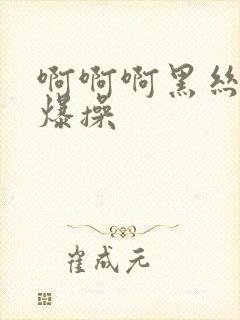 啊啊啊黑丝
爆操
崔成元